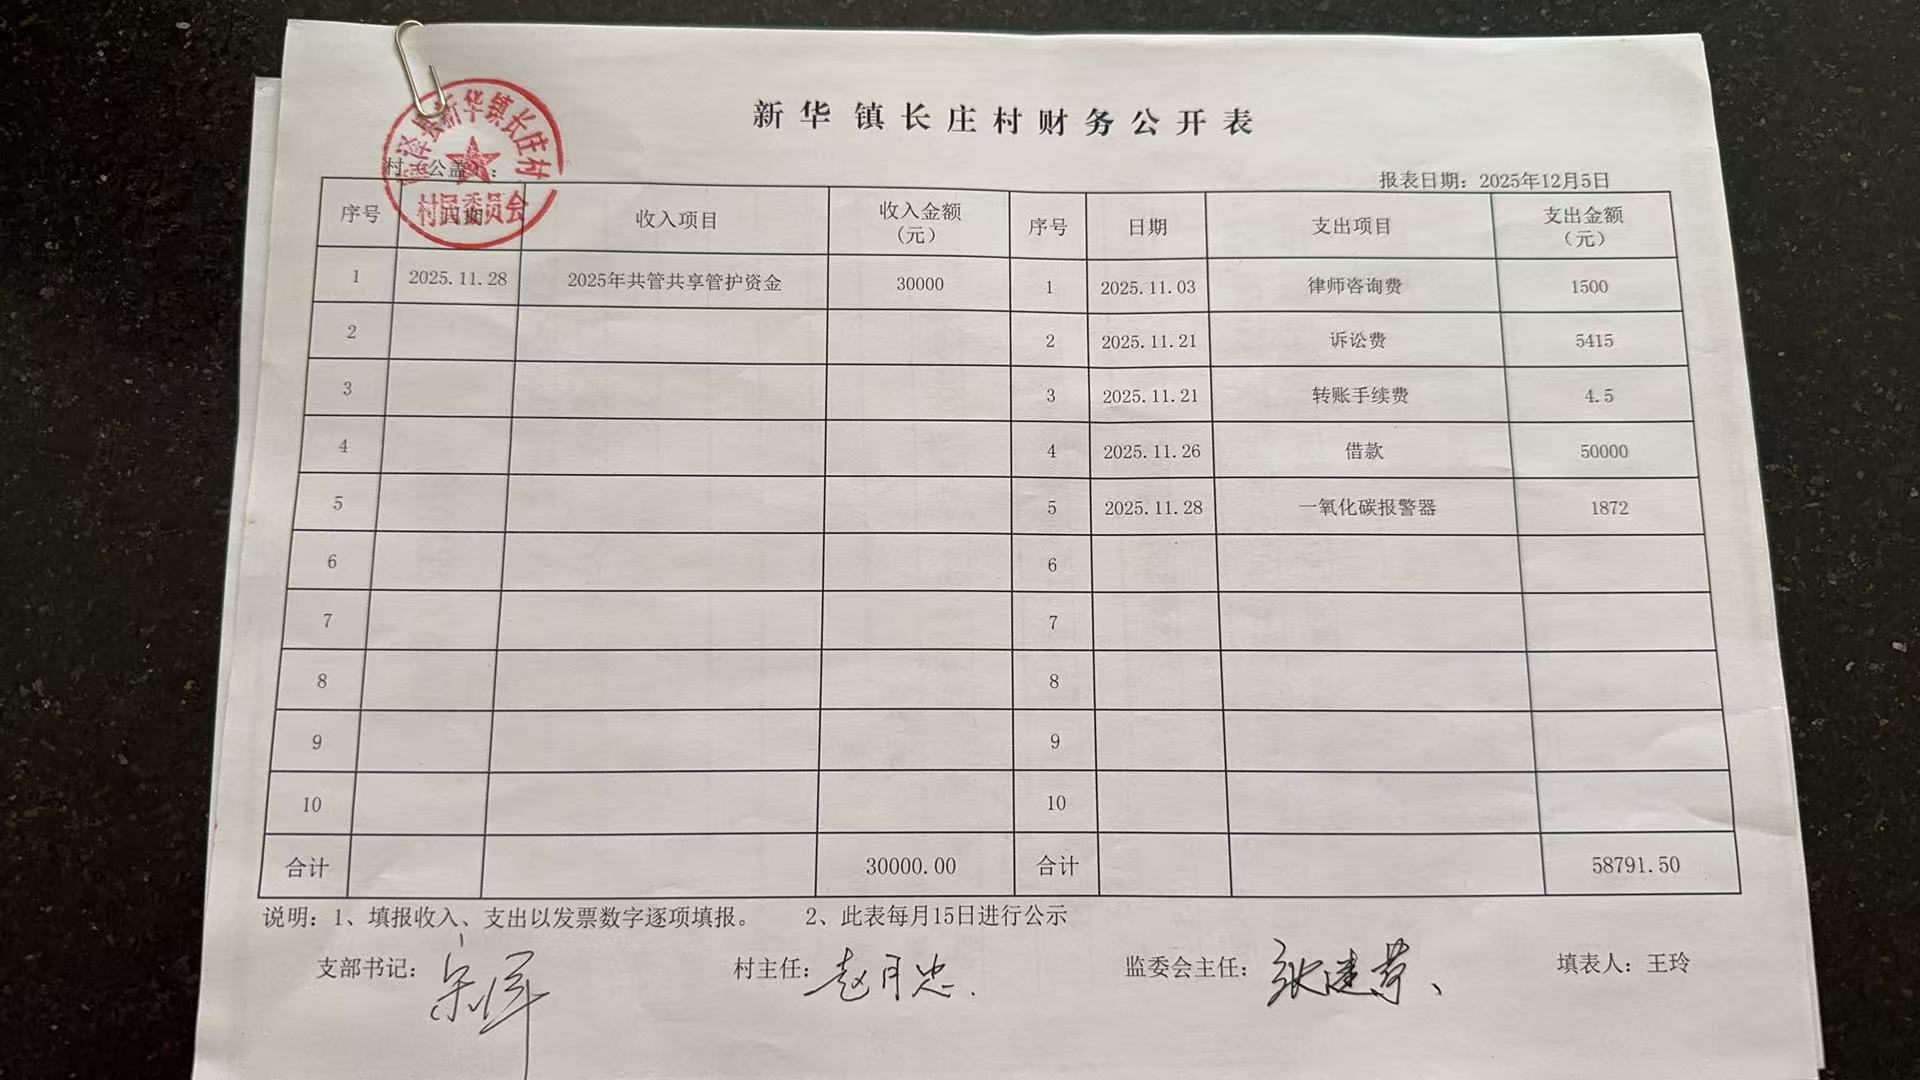 新华镇长庄村财务公开表
县新华镇长庄村
村民委员会
村（公盖）：
报表日期：2025年12月5日
序号 日期 收入项目 收入金额（元） 序号 日期 支出项目 支出金额（元）
1 2025.11.28 2025年共管共享管护资金 30000 1 2025.11.03 律师咨询费 1500
2 2 2025.11.21 诉讼费 5415
3 3 2025.11.21 转账手续费 4.5
4 4 2025.11.26 借款 50000
5 5 2025.11.28 一氧化碳报警器 1872
6 6
7 7
8 8
9 9
10 10
合计 30000.00 合计 58791.50
说明：1、填报收入、支出以发票数字逐项填报。 2、此表每月15日进行公示
支部书记： 村主任：赵月忠. 监委会主任：张建 填表人：王玲